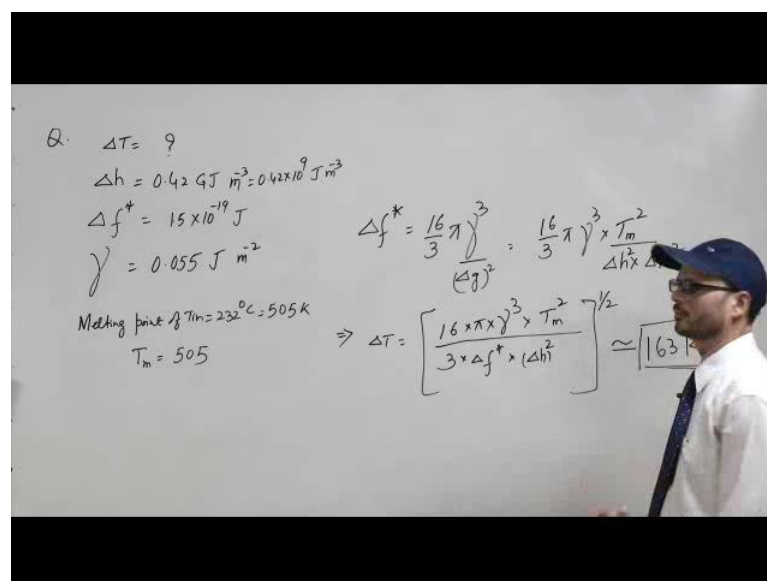 Q. ΔT = ?
Δh = 0.42 GJ m⁻³ = 0.42×10⁹ J m⁻³
Δf* = 15×10⁻¹⁹ J
γ = 0.055 J m⁻²
Melting point of Tin = 232°C = 505 K
Tm = 505
Δf* = 16/3 π γ³/(Δg)² = 16/3 π γ³ × Tm²/Δh² ×
⇒ ΔT = [16×π×γ³×Tm² / 3×Δf*×(Δh)²]^1/2 ≃ 163